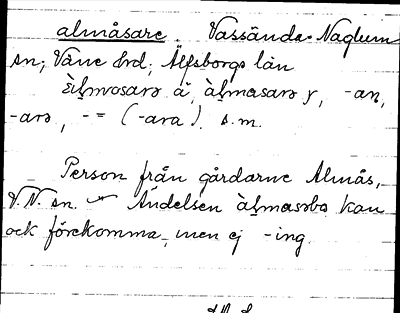 almåsare. Vassända-Naglum
sn; Väne hrd; Älfsborgs län
àl̥masarə y, -an,
-arə, -= (-ara). s.m.
Person från gårdarne Almås,
V.N. sn. Ändelsen àl̥masəbo kan
ock förekomma, men ej -ing.